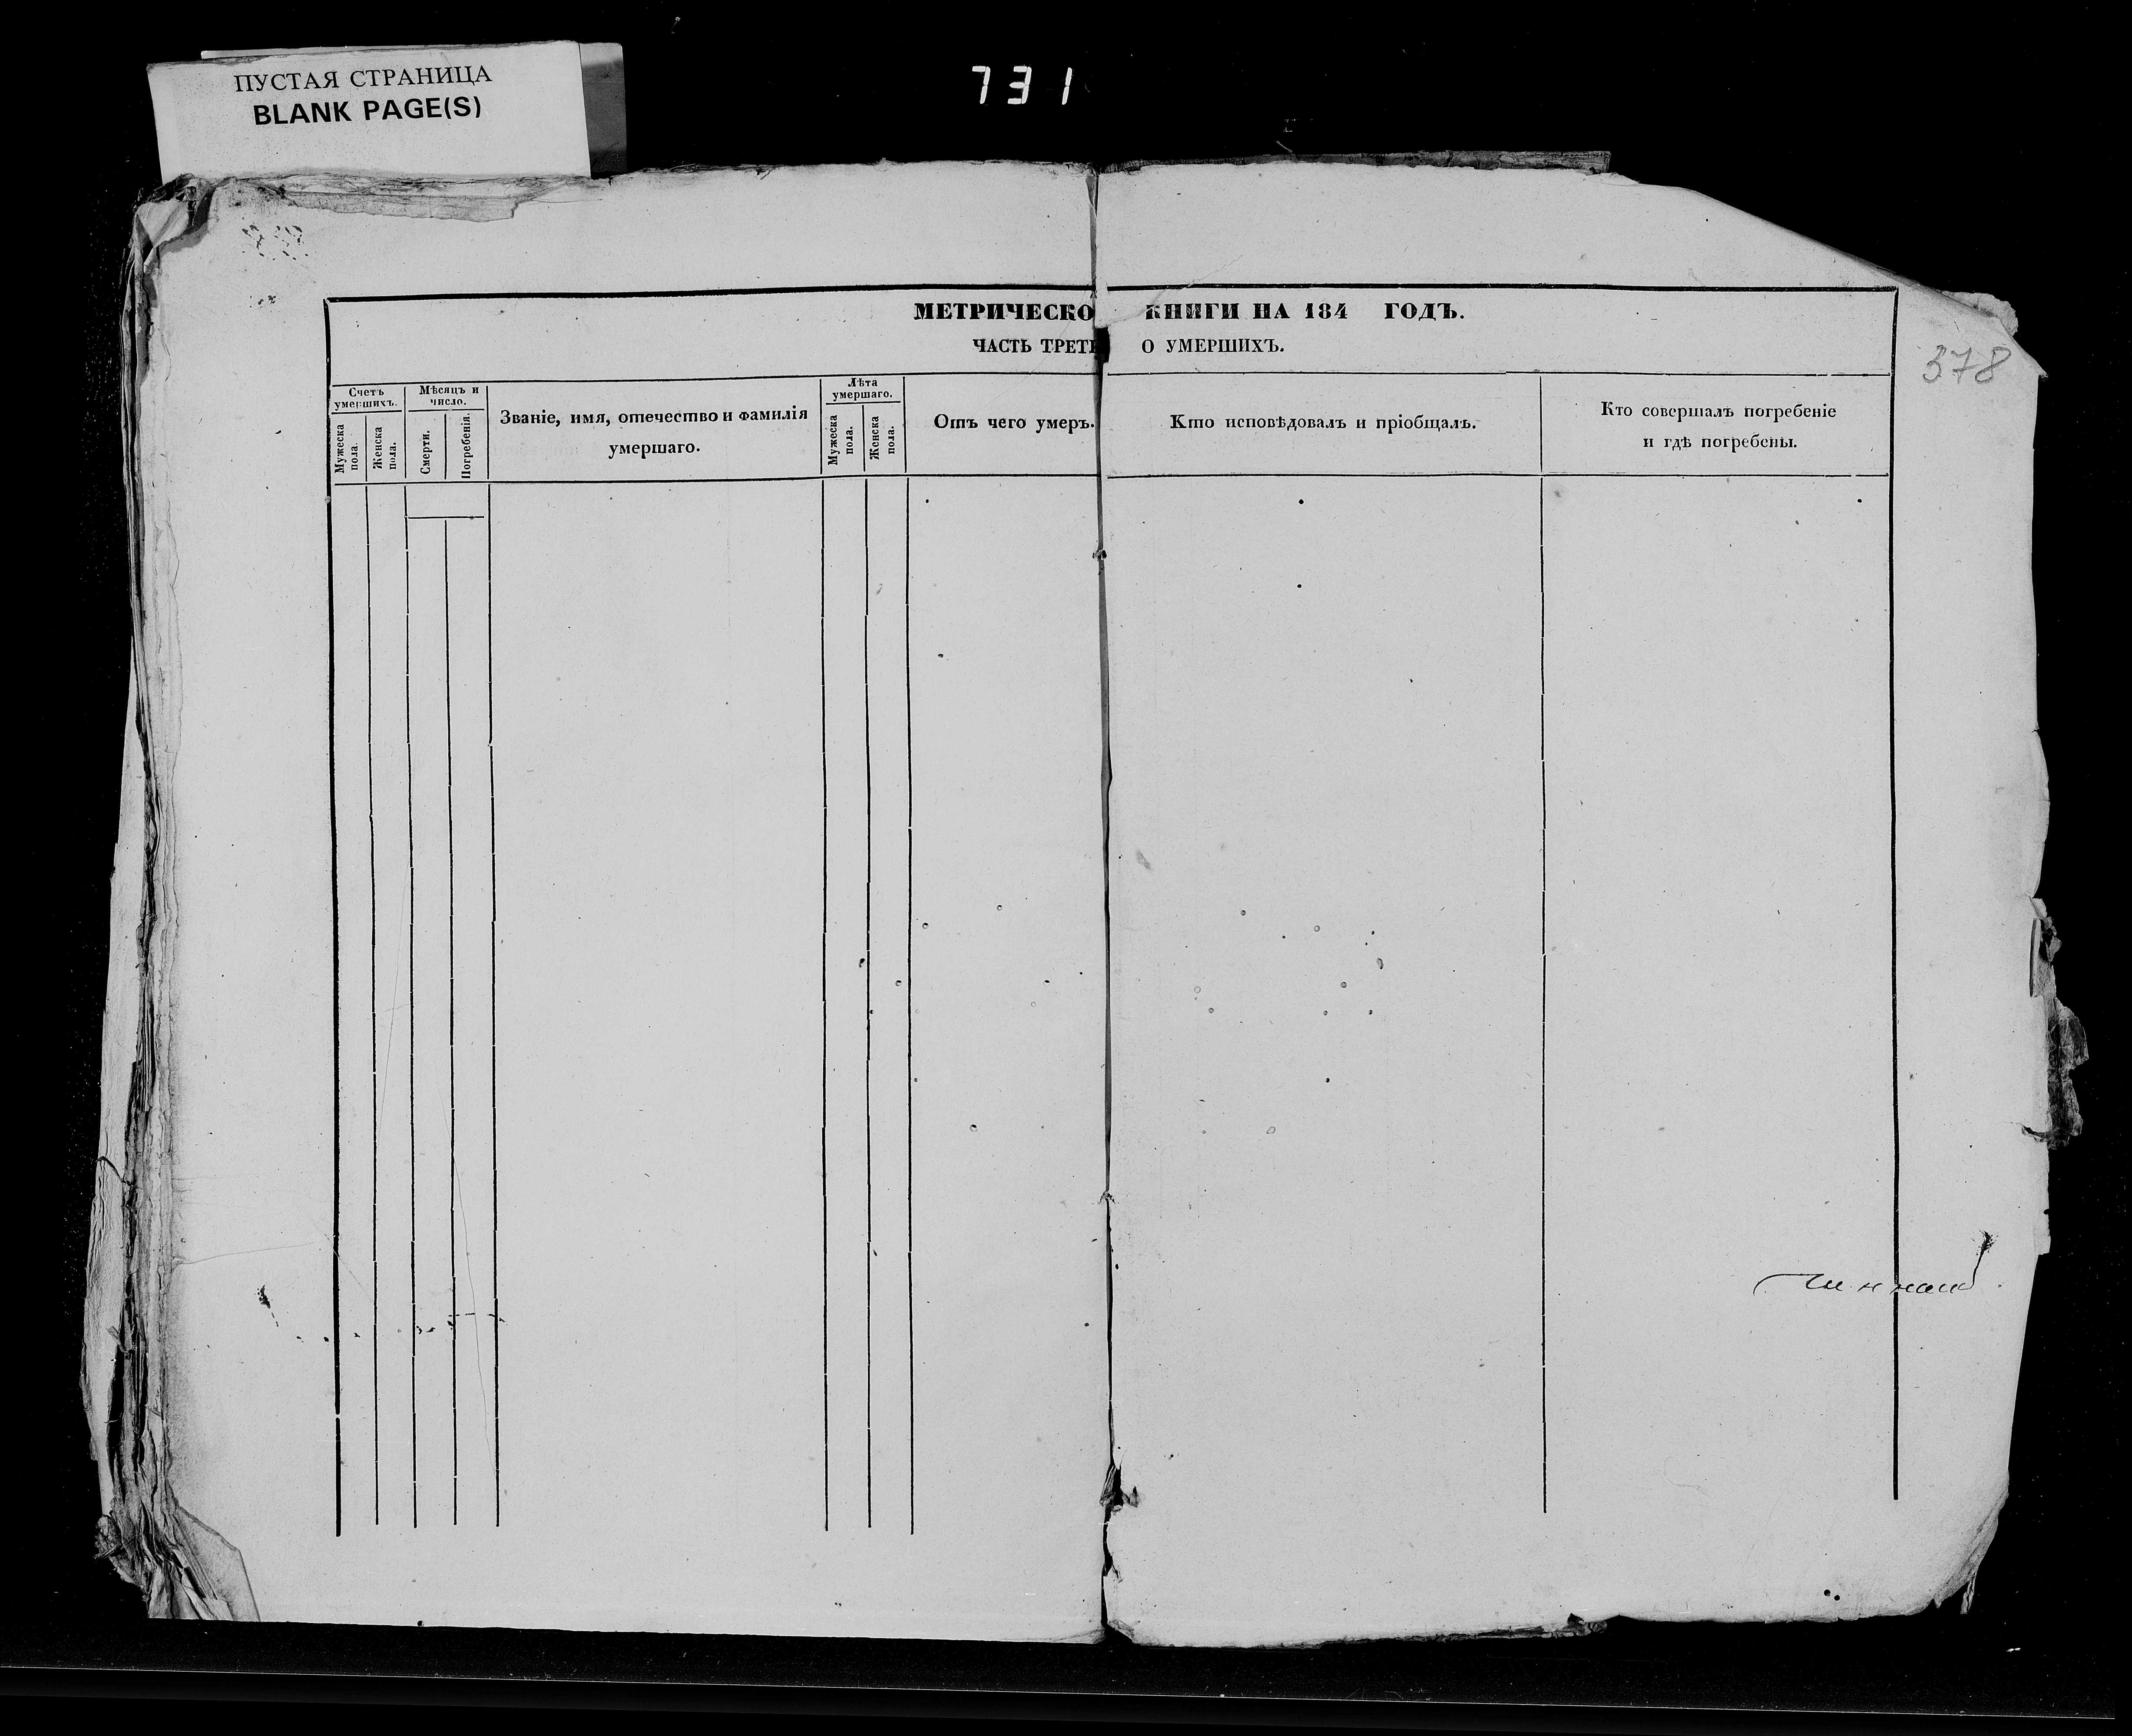 ПУСТАЯ СТРАНИЦА
BLANK PAGE(S)
731
МЕТРИЧЕСКО КНИГИ НА 184 ГОДЪ.
ЧАСТЬ ТРЕТ О УМЕРШИХЪ.
378
Счетъ умершихъ.
Мужеска пола.
Женска пола.
Мѣсяцъ и число.
Смерти.
Погребенія.
Званіе, имя, отечество и фамилія
умершаго.
Лѣта умершаго.
Мужеска пола.
Женска пола.
Отъ чего умеръ.
Кто исповѣдовалъ и пріобщалъ.
Кто совершалъ погребеніе
и гдѣ погребены.